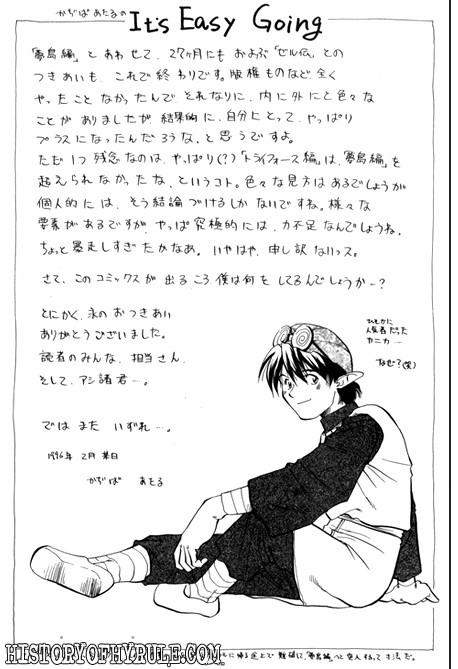 かぢば あたるの It's Easy Going
「夢島編」と あわせて、27ヶ月にも およぶ「ゼル伝」との
つきあいも、これで終わりです。版権ものなど 全く
やったこと なかったんで、それなりに、内に外にと色々な
ことが ありましたが、結果的に、自分に とって、やっぱり
プラスになったんだろうな、と思うですよ。
ただ 1つ 残念なのは、やっぱり(?)「トライフォース編」は、「夢島編」を
超えられなかったな、というコト。色々な見方はあるでしょうが
個人的には、そう結論づけるしかないですね。様々な
要素があるですが、やっぱ究極的には、力不足なんでしょうね。
ちょっと暴走しすぎたかなあ。いやはや、申し訳ないっス。
さて、このコミックスが 出るころ、僕は何を してるんでしょうかー?
とにかく、永の おつきあい
ありがとうございました。
読者のみんな、担当さん、
そして、アシ諸君ー。
では また いずれー。
1996年 2月 某日
かぢば あたる
ひそかに
人気者だった
カニカー
なぜ?(笑)
HISTORYOFHYRULE.COM